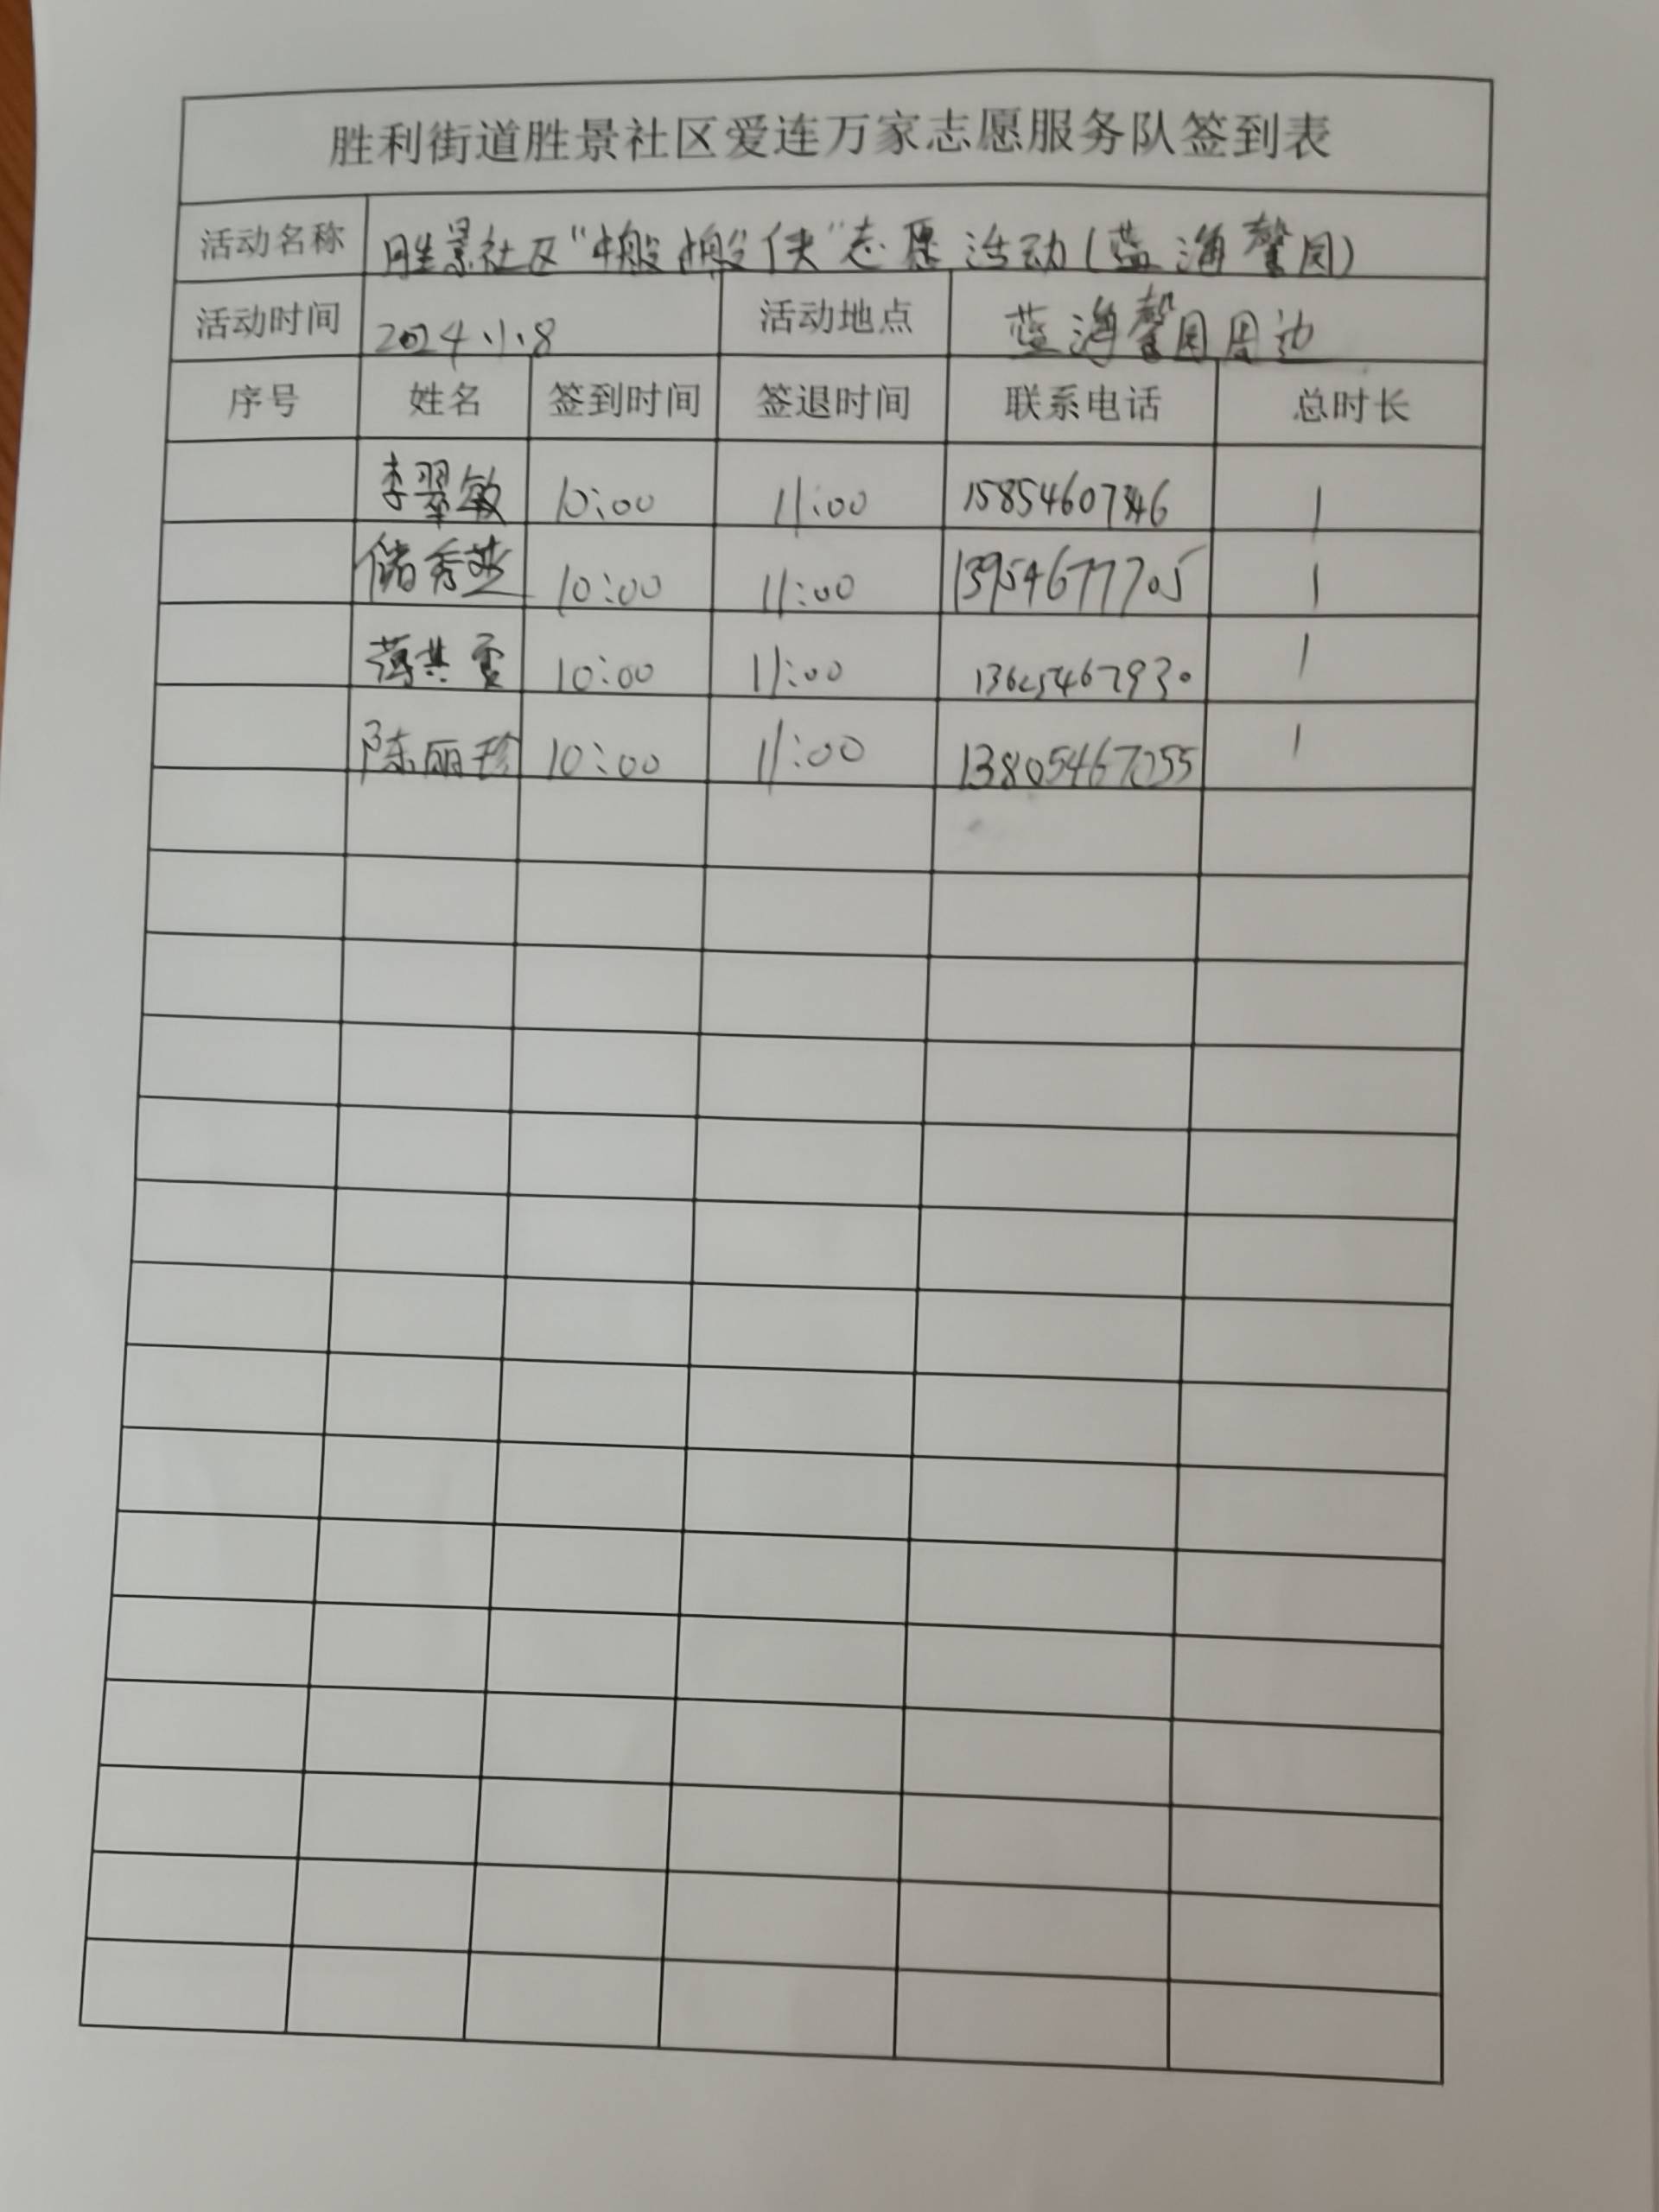 胜利街道胜景社区爱连万家志愿服务队签到表
活动名称 胜景社区“搬搬侠”志愿活动(蓝海馨园)
活动时间 2024.1.8 活动地点 蓝海馨园周边
序号 姓名 签到时间 签退时间 联系电话 总时长
李翠敏 10:00 11:00 1
储秀芝 10:00 11:00 13954677705 1
10:00 11:00 13625467930 1
陈丽珍 10:00 11:00 13805467255 1